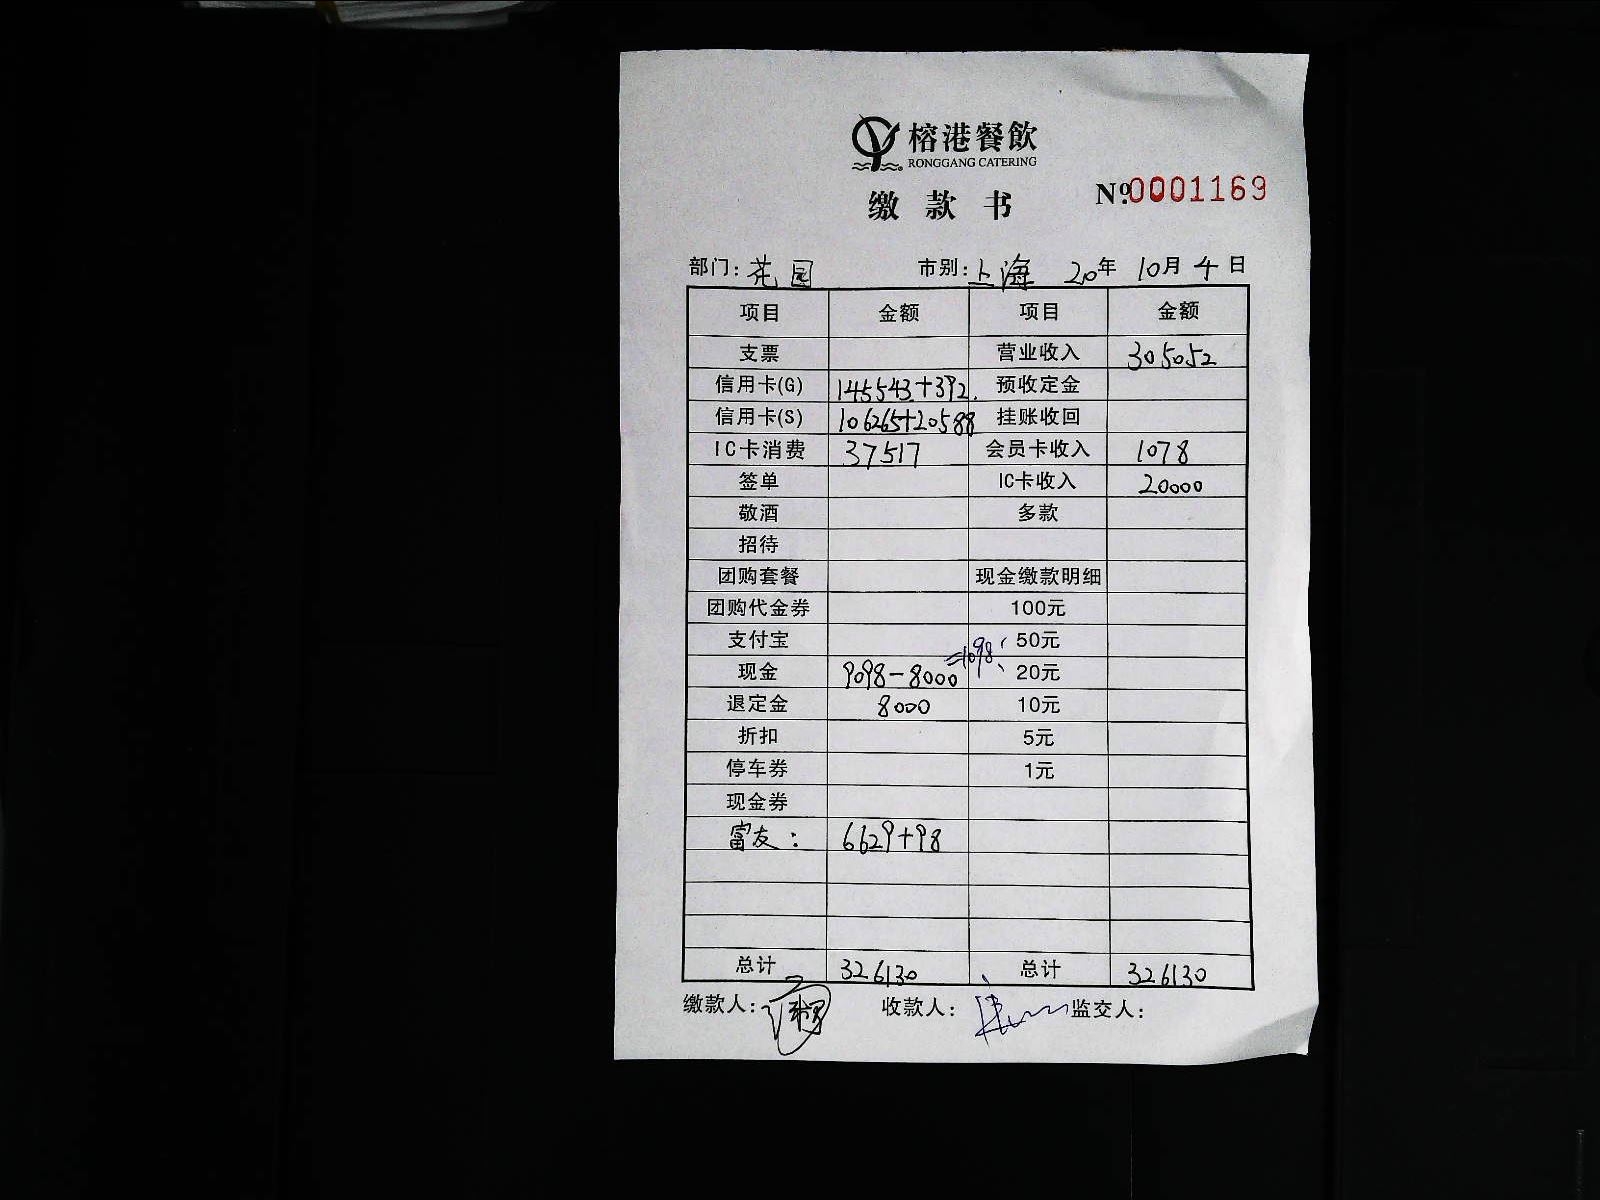 榕港餐飲
RONGGANG CATERING
缴款书 Nº.0001169
部门: 花园 市别: 上海 20年 10月 4日
项目 金额 项目 金额
支票 营业收入 305052
信用卡(G) 145543+392. 预收定金
信用卡(S) 106265+20588 挂账收回
IC卡消费 37517 会员卡收入 1078
签单 IC卡收入 20000
敬酒 多款
招待
团购套餐 现金缴款明细
团购代金券 100元
支付宝 50元
现金 9098-8000=1098 20元
退定金 8000 10元
折扣 5元
停车券 1元
现金券
富友: 6629+98
总计 326130 总计 326130
缴款人: 收款人: 监交人: